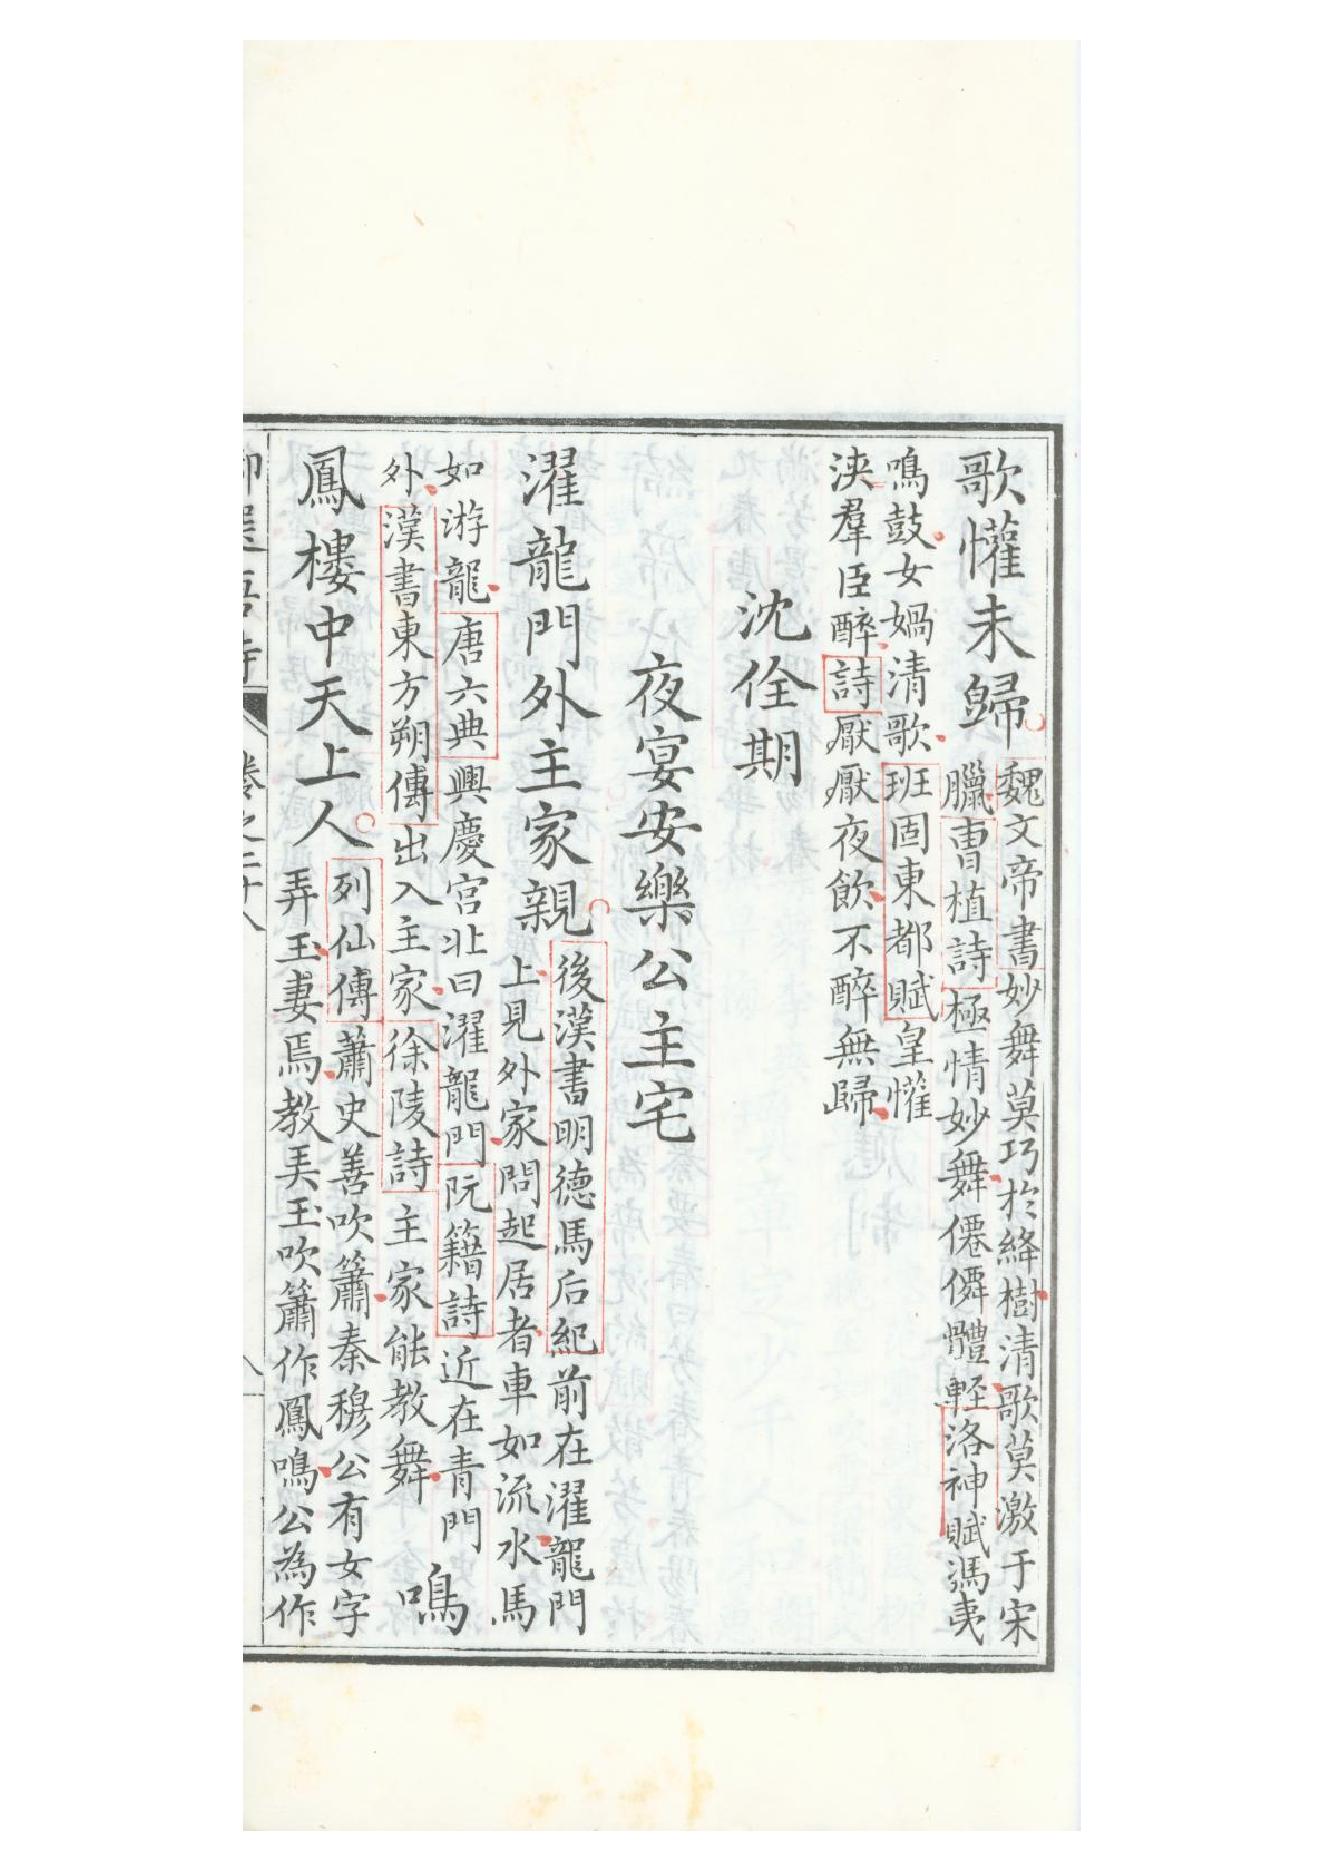 歌懽未歸
魏文帝書妙舞莫巧於絳樹清歌莫激于宋
臘曹植詩極情妙舞僊僊體輕洛神賦馮夷
鳴鼓女媧清歌班固東都賦皇懽
浹羣臣醉詩厭厭夜飲不醉無歸
沈佺期
夜宴安樂公主宅
濯龍門外主家親
後漢書明德馬后紀前在濯龍門
上見外家問起居者車如流水馬
如游龍唐六典興慶宮北曰濯龍門阮籍詩近在青門
外漢書東方朔傳出入主家徐陵詩主家能教舞
鳴
鳳樓中天上人
列仙傳蕭史善吹簫秦穆公有女字
弄玉妻焉教弄玉吹簫作鳳鳴公為作